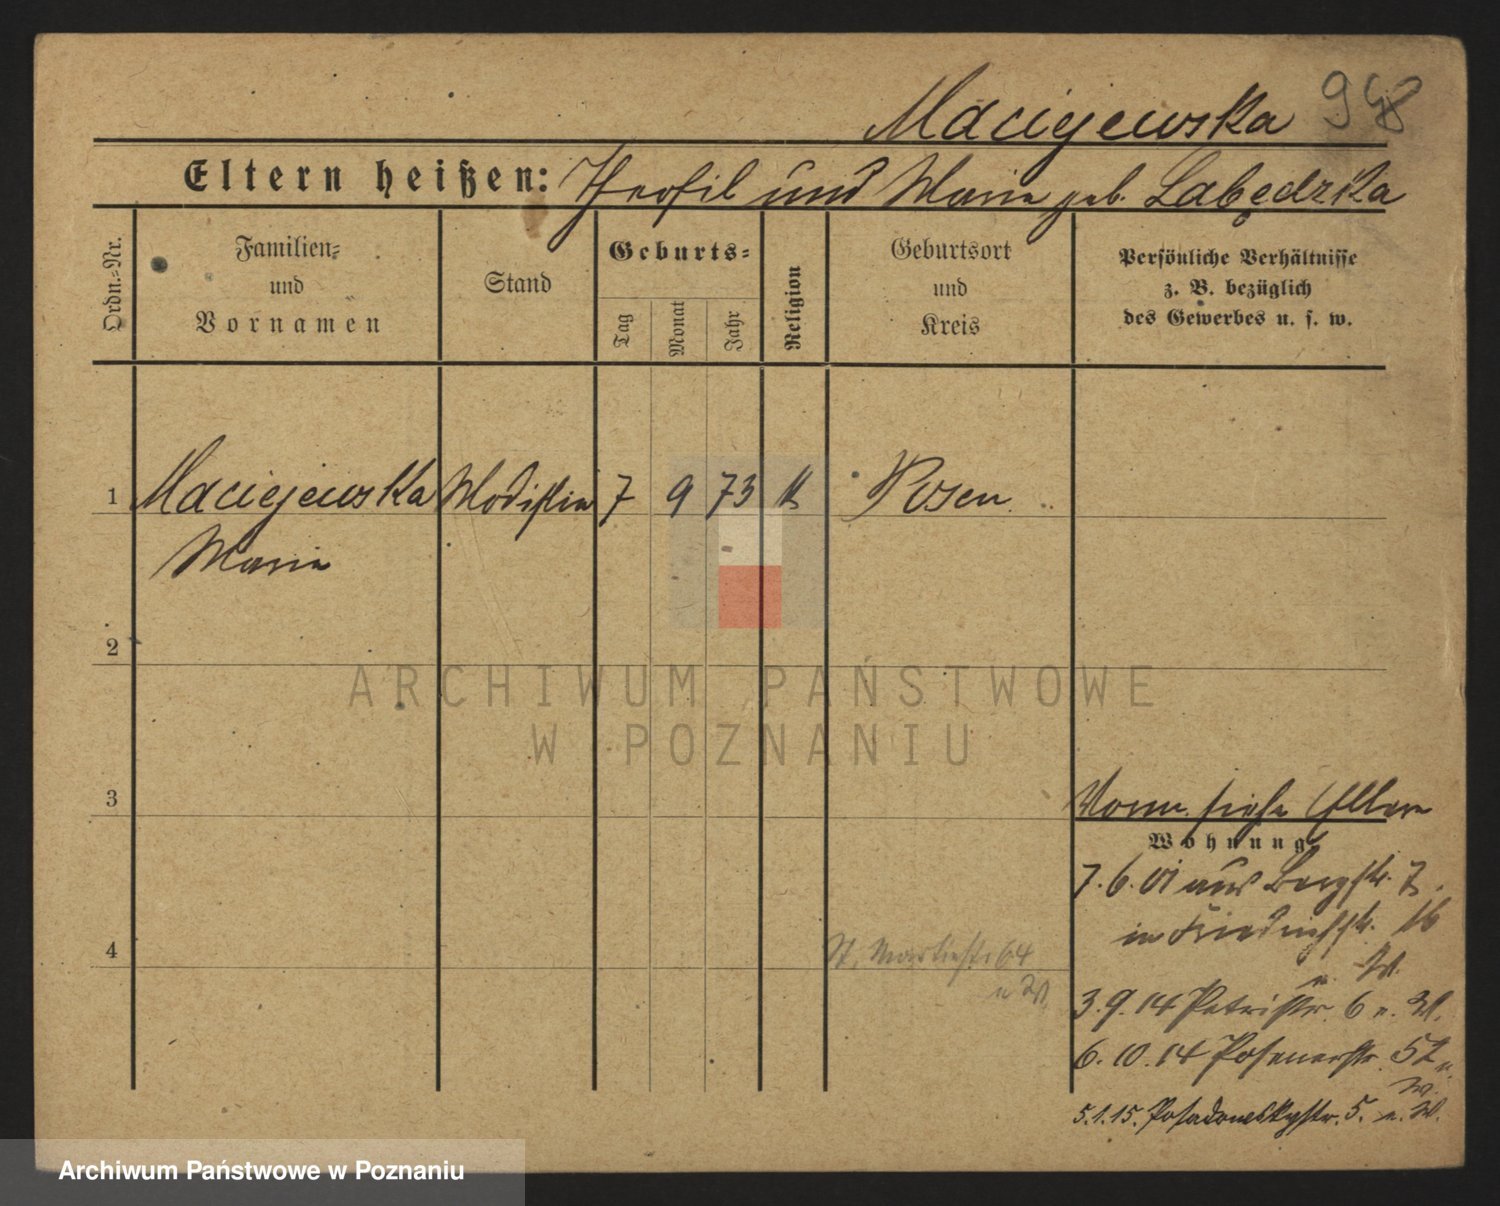 Maciejewska 948
Eltern heißen: Theofil und Marie geb. Łabędzka
Ordn.=Nr.
Familien=
und
Vornamen
Stand
Geburts=
Tag
Monat
Jahr
Religion
Geburtsort
und
Kreis
Persönliche Verhältnisse
z. B. bezüglich
des Gewerbes u. s. w.
1 Maciejewska Modistin 7 9 73 k Posen
Marie
2
ARCHIWUM PAŃSTWOWE
W POZNANIU
3
Vorm. siehe Eltern
Wohnung
7.6.01 aus Bergstr. 7
in Friedrichstr. 16
4
St. Martinstr. 64
3.9.14 Petristr. 6 u. W.
6.10.14 Posenerstr. 52 u.
W.
5.1.15. Posadowskystr. 5. u. W.
Archiwum Państwowe w Poznaniu